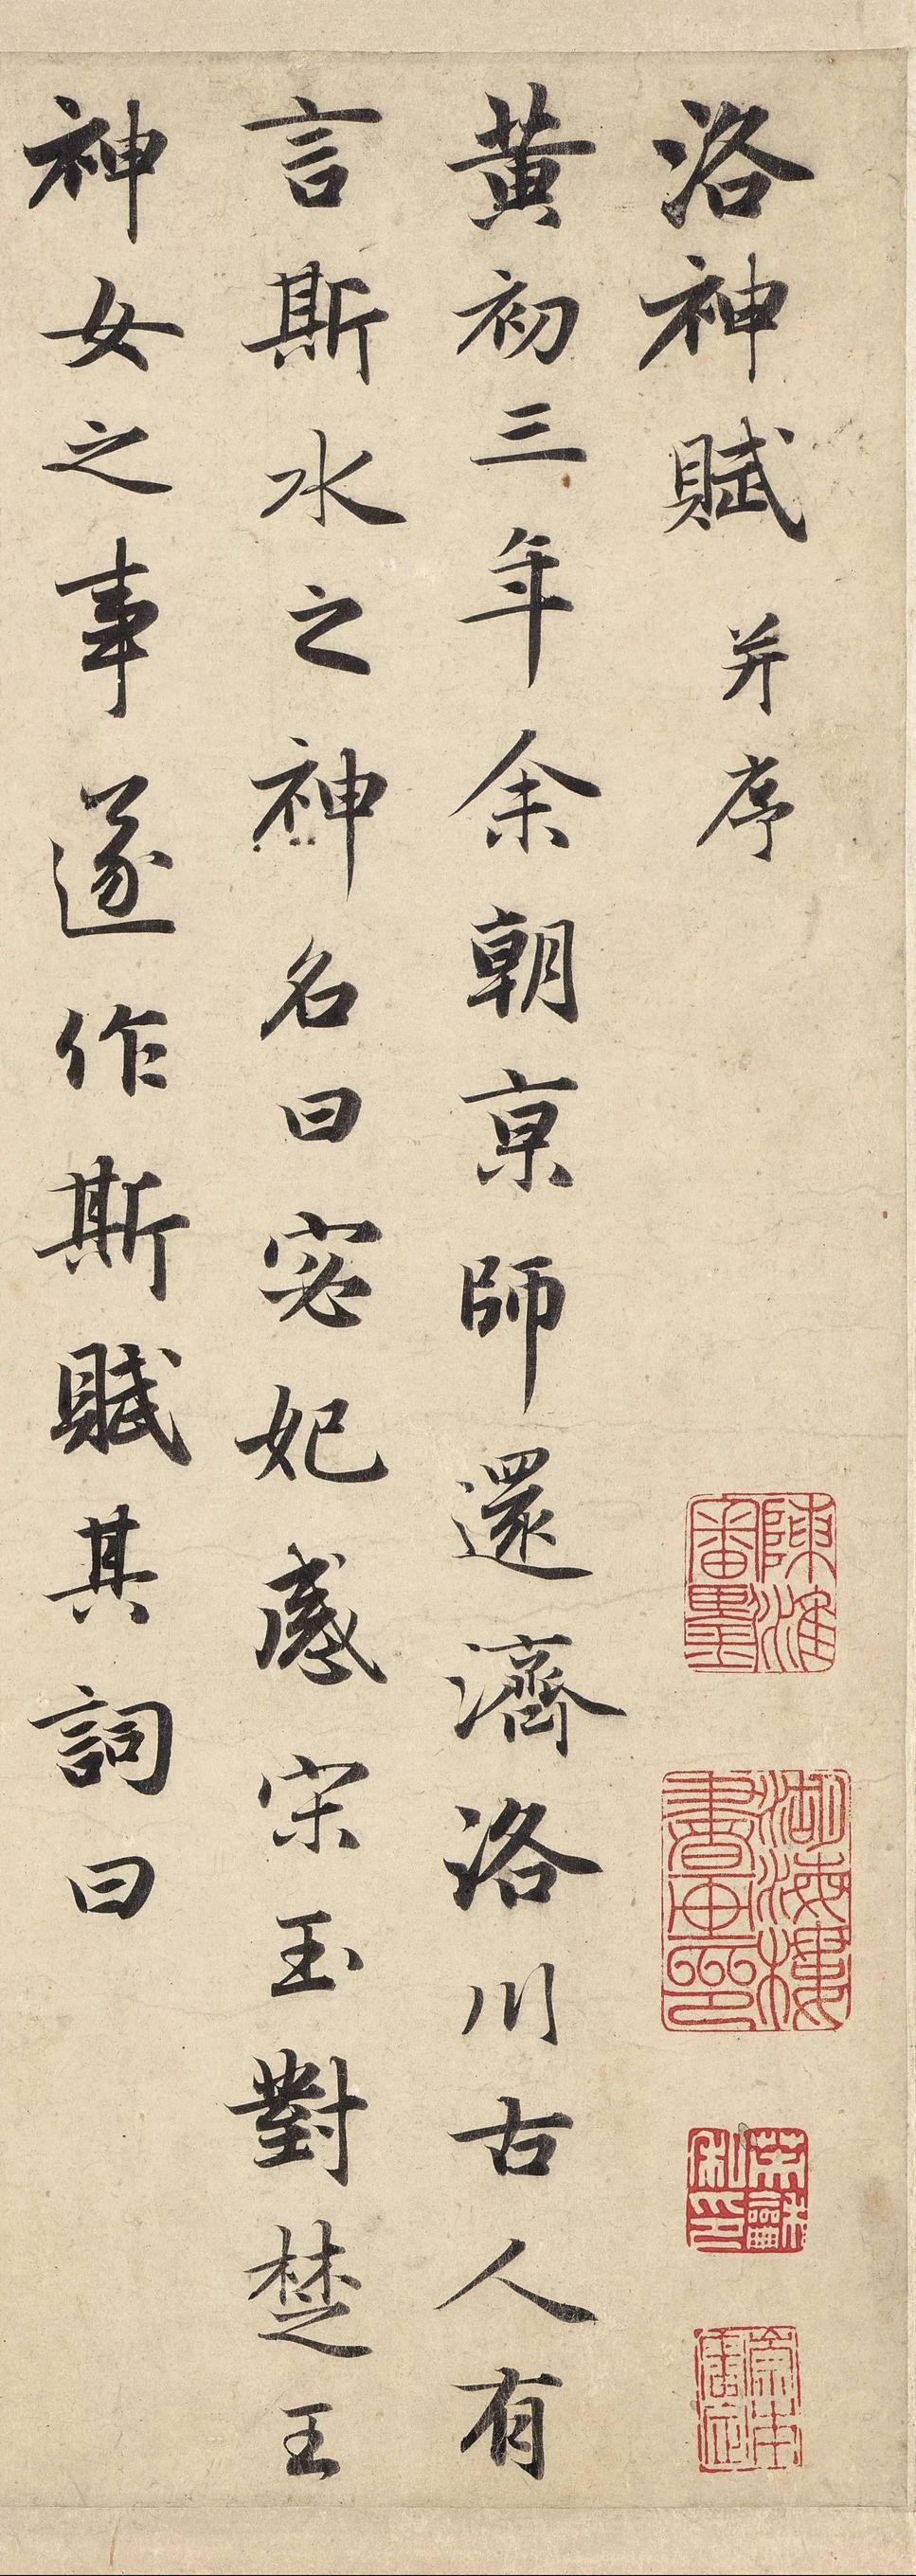 洛神賦 并序
黄初三年余朝京師還濟洛川古人有
言斯水之神名曰宓妃感宋玉對楚王
神女之事遂作斯賦其詞曰